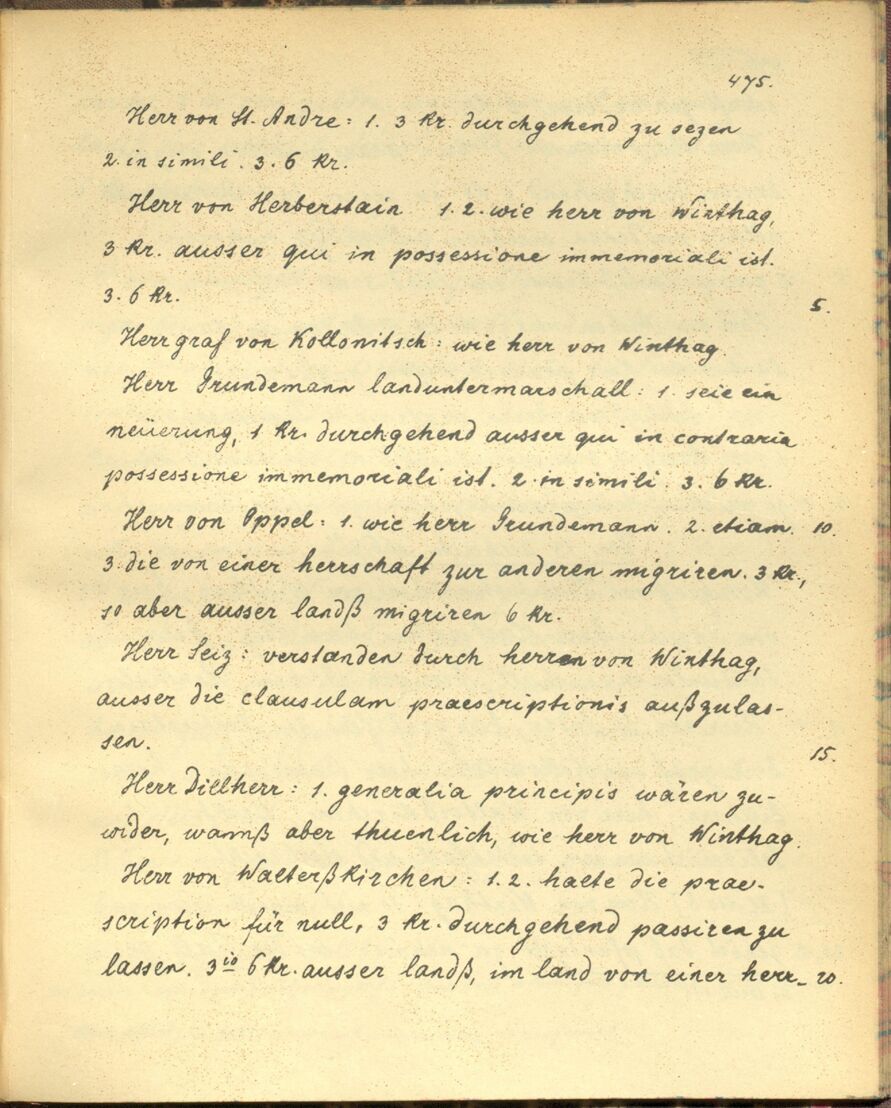 475.
Herr von St. Andre: 1. 3 Kr. durchgehend zu sezen
2. in simili. 3. 6 Kr.
Herr von Herberstain 1. 2. wie herr von Winthag,
3 Kr. ausser qui in possessione immemoriali ist.
3. 6 Kr.
5.
Herr graf von Kollonitsch: wie herr von Winthag.
Herr Grundemann landuntermarschall: 1. seie ein
neüerung, 1 Kr. durchgehend ausser qui in contraria
possessione immemoriali ist. 2. in simili. 3. 6 Kr.
Herr von Oppel: 1. wie herr Grundemann. 2. etiam. 10.
3. die von einer herrschaft zur anderen migriren. 3 Kr.,
so aber ausser landß migriren 6 Kr.
Herr Seiz: verstanden durch herren von Winthag,
ausser die clausulam praescriptionis außzulas-
sen.
15.
Herr Dillherr: 1. generalia principis wären zu-
wider, wannß aber thuenlich, wie herr von Winthag.
Herr von Walterßkirchen: 1. 2. halte die prae-
scription für null, 3 Kr. durchgehend passiren zu
lassen. 3io 6 Kr. ausser landß, im land von einer herr- 20.